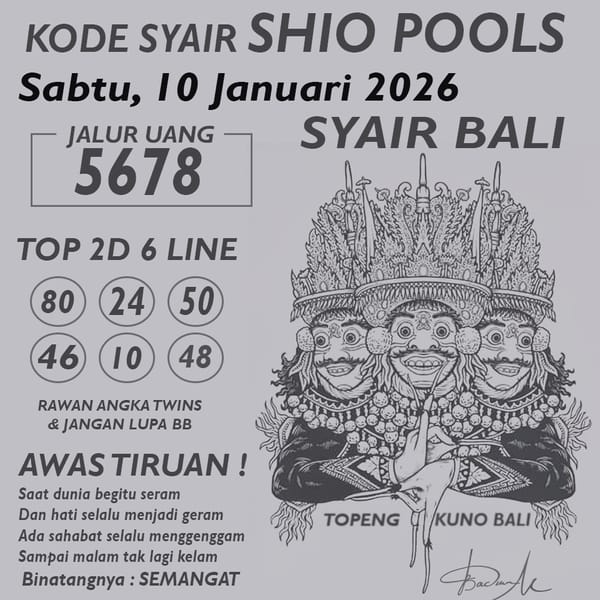 KODE SYAIR SHIO POOLS
Sabtu, 10 Januari 2026
JALUR UANG
5678
SYAIR BALI
TOP 2D 6 LINE
80 24 50
46 10 48
RAWAN ANGKA TWINS
& JANGAN LUPA BB
AWAS TIRUAN !
Saat dunia begitu seram
Dan hati selalu menjadi geram
Ada sahabat selalu menggenggam
Sampai malam tak lagi kelam
Binatangnya : SEMANGAT
TOPENG KUNO BALI